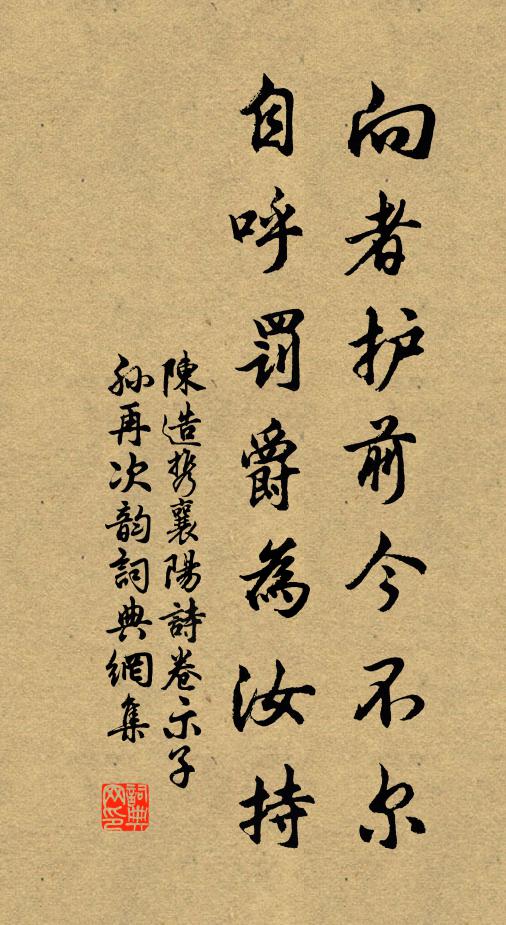 向者护前今不尔
自呼罚爵為汝持
陳造携襄陽詩卷示子
孫再次韵詞典網集
詞典
网印